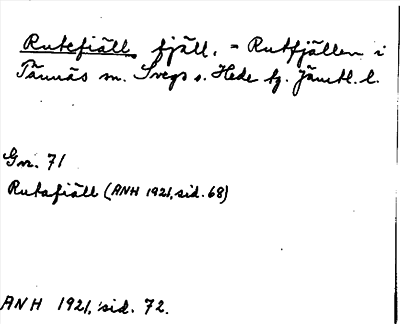 Rutefiäll fjäll. = Rutfjällen i
Tännäs sn. Svegs o. Hede tg. Jämtl. l.
Gr. 71
Rutafiäll (ANH 1921, sid. 68)
ANH 1921, sid. 72.